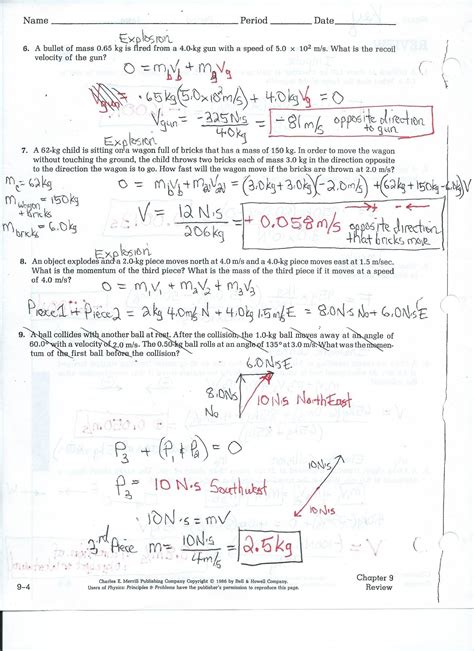 Name Period Date
Explosion
6. A bullet of mass 0.65 kg is fired from a 4.0-kg gun with a speed of 5.0 × 10² m/s. What is the recoil
velocity of the gun?
0 = m_b V_b + m_g V_g
.65kg(5.0x10² m/s) + 4.0kg V_g = 0
V_gun = -325 N·s / 4.0kg = -81 m/s opposite direction to gun
Explosion
7. A 62-kg child is sitting on a wagon full of bricks that has a mass of 150 kg. In order to move the wagon
without touching the ground, the child throws two bricks each of mass 3.0 kg in the direction opposite
to the direction the wagon is to go. How fast will the wagon move if the bricks are thrown at 2.0 m/s?
m_c = 62kg
0 = m_1V_1 + m_2V_2 = (3.0kg+3.0kg)(-2.0m/s) + (62kg+150kg-6.0kg)V
m wagon + bricks = 150kg
m bricks = 6.0kg
V = 12 N·s / 206kg = +0.058 m/s opposite direction that bricks move
Explosion
8. An object explodes and a 2.0-kg piece moves north at 4.0 m/s and a 4.0-kg piece moves east at 1.5 m/sec.
What is the momentum of the third piece? What is the mass of the third piece if it moves at a speed
of 4.0 m/s?
0 = m_1V_1 + m_2V_2 + m_3V_3
Piece1 + Piece2 = 2kg 4.0m/s N + 4.0kg 1.5m/s E = 8.0N·s No + 6.0N·s E
9. A ball collides with another ball at rest. After the collision, the 1.0-kg ball moves away at an angle of
60.0° with a velocity of 2.0 m/s. The 0.50-kg ball rolls at an angle of 135° at 3.0 m/s. What was the momen-
tum of the first ball before the collision?
6.0N·s E
8.0N·s No
10 N·s NorthEast
P_3 + (P_1 & P_2) = 0
10N·s
P_3 = 10 N·s Southwest
10N·s
10N·s = mV
3rd Piece m = 10N·s / 4m/s = 2.5kg
Charles E. Merrill Publishing Company Copyright © 1986 by Bell & Howell Company.
Users of Physics: Principles & Problems have the publisher's permission to reproduce this page.
9-4
Chapter 9
Review